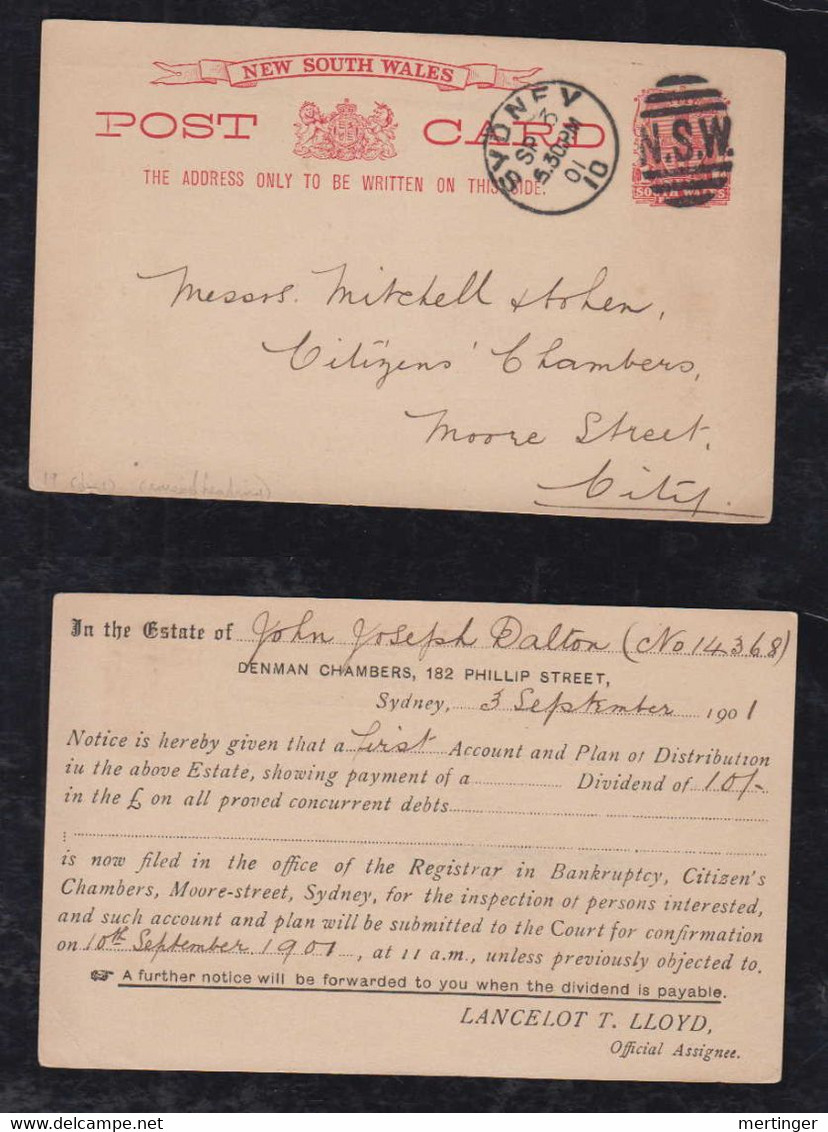 NEW SOUTH WALES
POST CARD
THE ADDRESS ONLY TO BE WRITTEN ON THIS SIDE.
SYDNEY
SP 3
5.30PM
01
10
N.S.W.
SOUTH WALES
Messrs. Mitchell & Cohen,
Citizens' Chambers,
Moore Street,
City.
In the Estate of John Joseph Dalton (No 14368)
DENMAN CHAMBERS, 182 PHILLIP STREET,
Sydney, 3 September 1901
Notice is hereby given that a first Account and Plan of Distribution
in the above Estate, showing payment of a Dividend of 10/-
in the £ on all proved concurrent debts
is now filed in the office of the Registrar in Bankruptcy, Citizen's
Chambers, Moore-street, Sydney, for the inspection of persons interested,
and such account and plan will be submitted to the Court for confirmation
on 10th September 1901, at 11 a.m., unless previously objected to.
☞ A further notice will be forwarded to you when the dividend is payable.
LANCELOT T. LLOYD,
Official Assignee.
mertinger